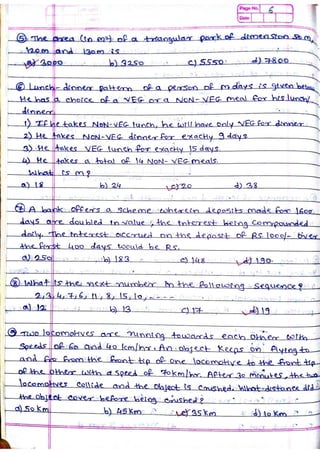 Page No. 6
Date
⑤ The area (in m²) of a triangular park of dimension 50 m,
120m and 130m is
a) 3000 b) 3250 c) 5550 d) 7800
⑥ Lunch-dinner pattern of a person of m days is given below
He has a choice of a VEG or a NON-VEG meal for his lunch/
dinner
1) If he takes NON-VEG lunch, he will have only VEG for dinner
2) He takes NON-VEG dinner for exactly 9 days
3) He takes VEG lunch for exactly 15 days.
4) He takes a total of 14 NON-VEG meals.
What is m?
a) 18 b) 24 c) 20 d) 38
⑦ A bank offers a scheme wherein deposits made for 1600
days are doubled in value, the interest being compounded
daily. The interest accrued on the deposit of RS.1000/- over
the first 400 days would be RS.
a) 250 b) 183 c) 148 d) 190
⑧ What is the next number in the following sequence?
2,3,4,7,6,11,8,15,10,----
a) 12 b) 13 c) 17 d) 19
⑨ Two locomotives are running towards each other with
speeds of 60 and 40 km/hr. An object keeps on flying to
and fro from the front tip of one locomotive to the front tip
of the other with a speed of 70km/hr. After 30 minutes, the two
locomotives collide and the object is crushed. What distance did
the object cover before being crushed?
a) 50 km b) 45 km c) 35 km d) 10 km